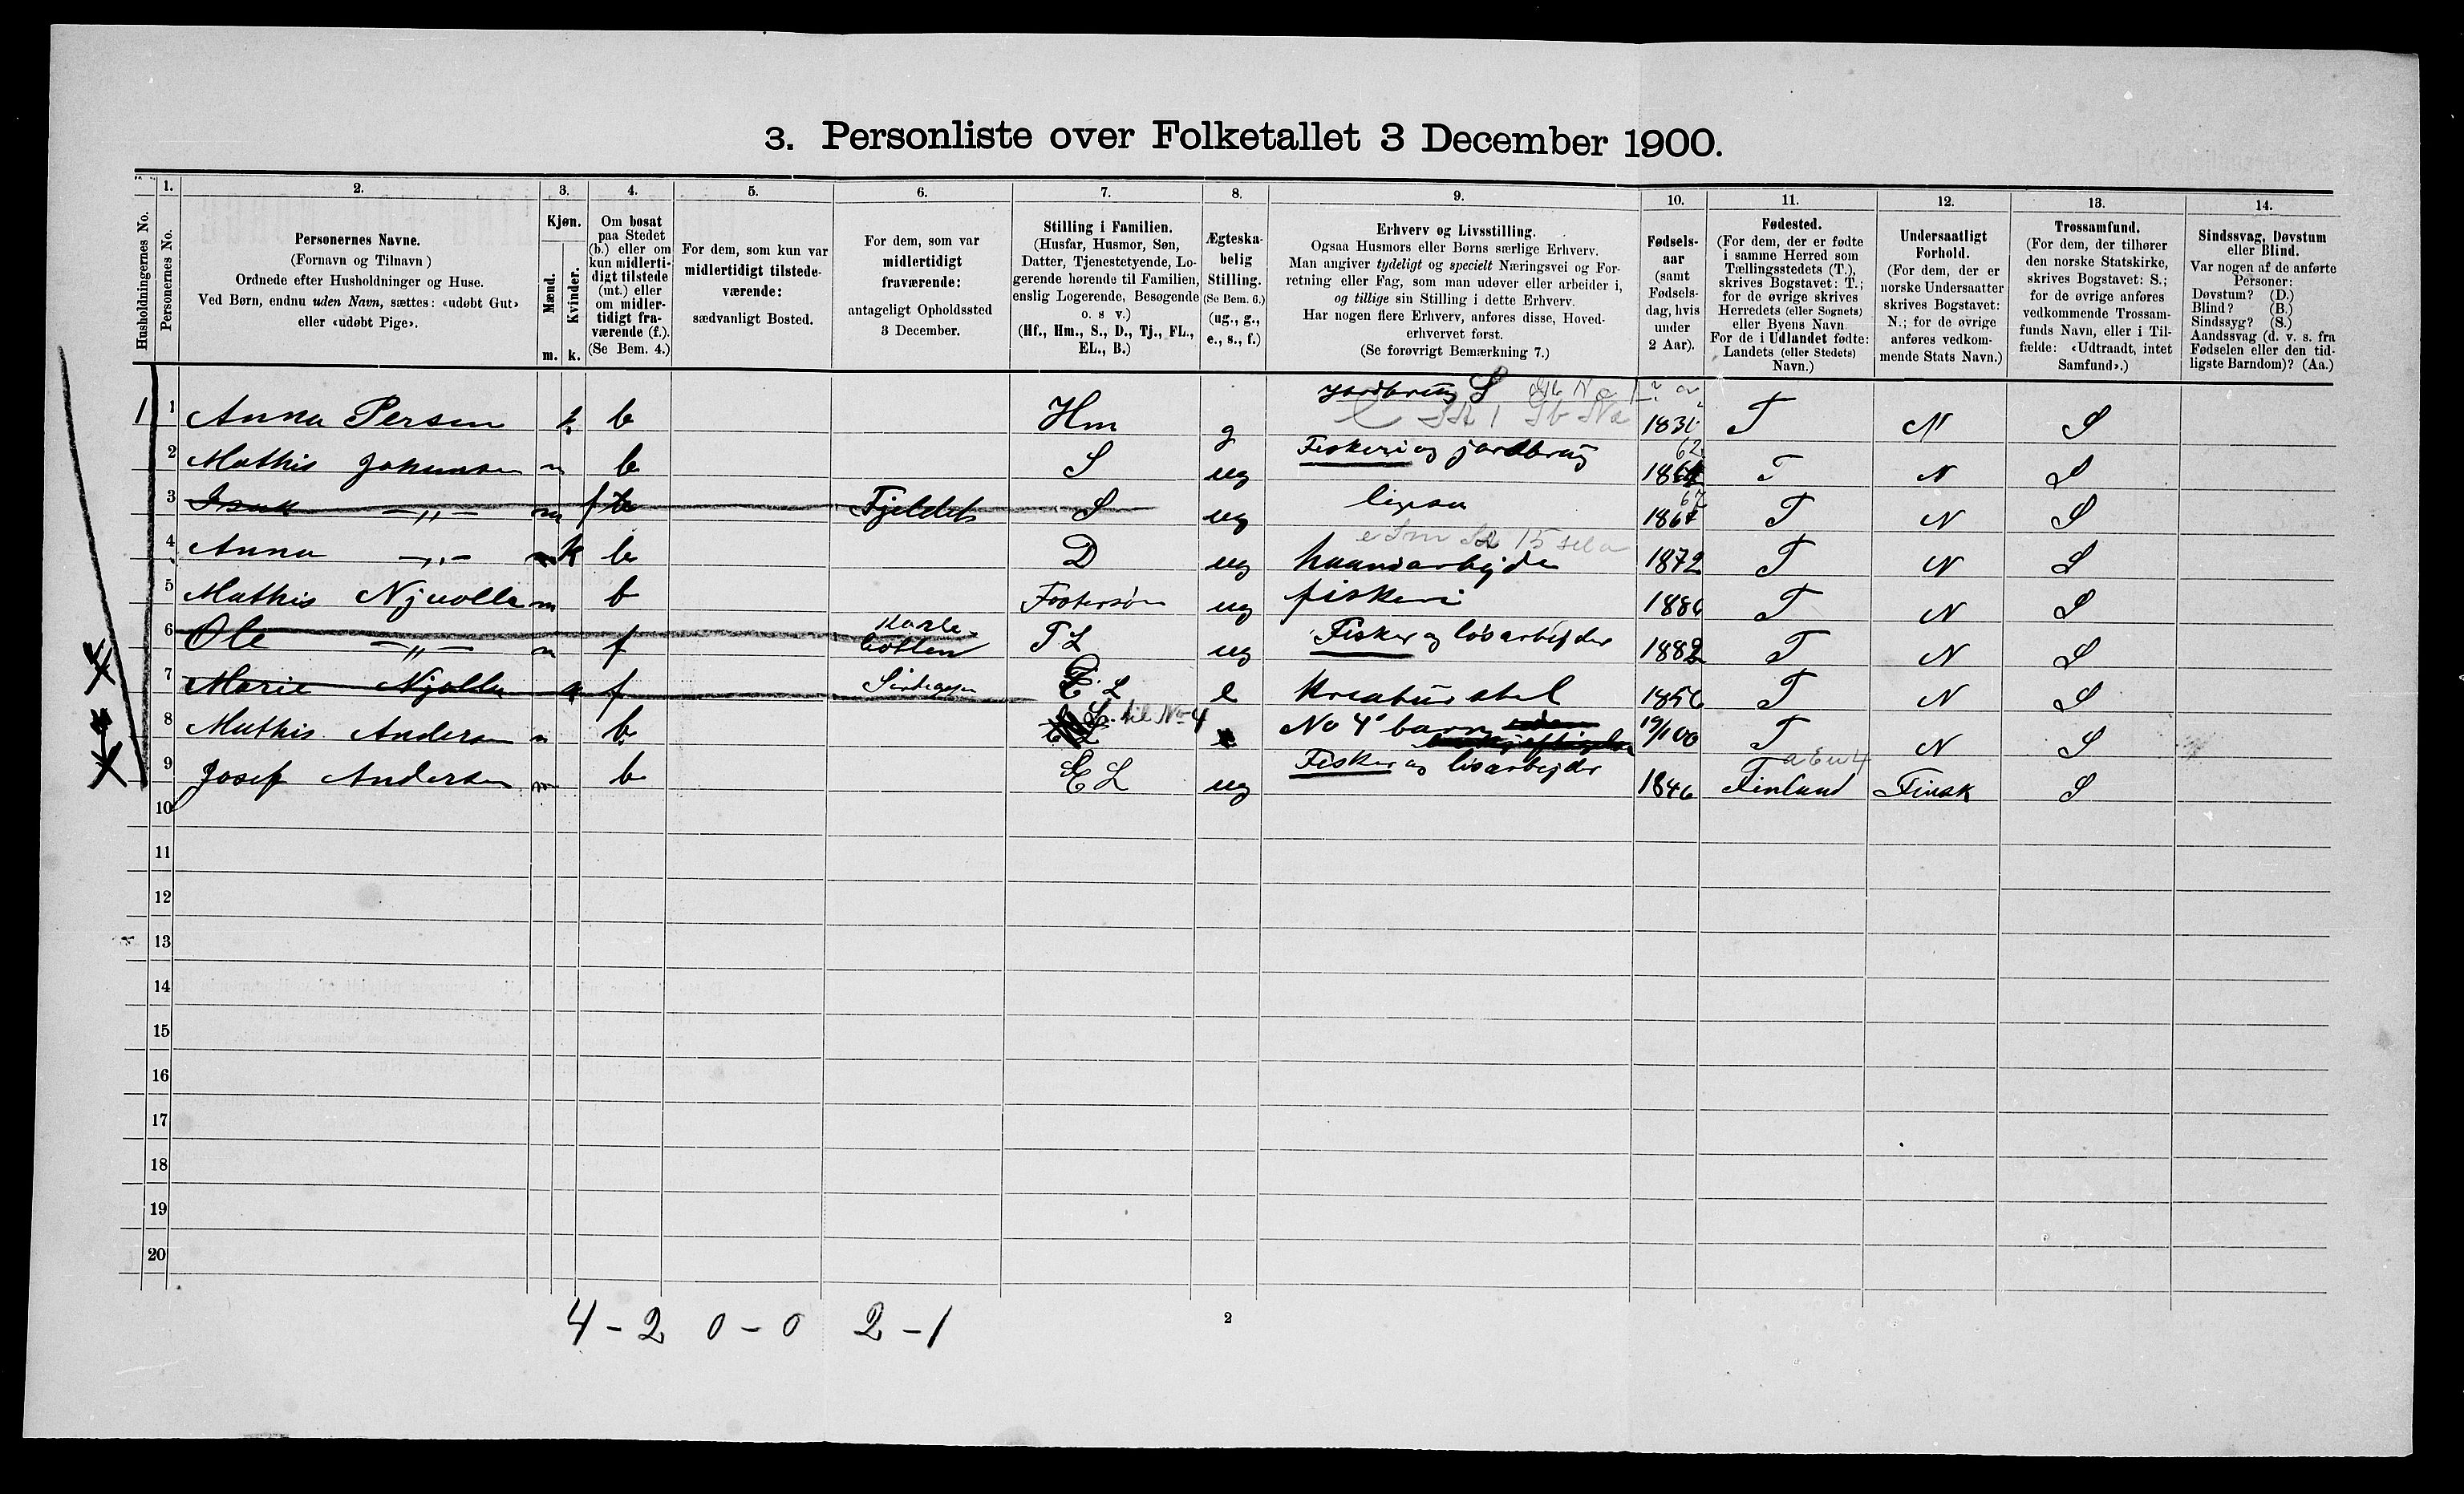 3. Personliste over Folketallet 3 December 1900.
1. 2. 3. 4. 5. 6. 7. 8. 9. 10. 11. 12. 13. 14.
Husholdningernes No.
Personernes No.
Personernes Navne.
(Fornavn og Tilnavn)
Ordnede efter Husholdninger og Huse.
Ved Børn, endnu uden Navn, sættes: «udøbt Gut»
eller «udøbt Pige».
Kjøn.
Mænd.
Kvinder.
m. k.
Om bosat
paa Stedet
(b.) eller om
kun midlerti-
digt tilstede
(mt.) eller
om midler-
tidigt fra-
værende (f.).
(Se Bem. 4.)
For dem, som kun var
midlertidigt tilstede-
værende:
sædvanligt Bosted.
For dem, som var
midlertidigt
fraværende:
antageligt Opholdssted
3 December.
Stilling i Familien.
(Husfar, Husmor, Søn,
Datter, Tjenestetyende, Lo-
gerende hørende til Familien,
enslig Logerende, Besøgende
o. s v.)
(Hf., Hm., S., D., Tj., FL.,
EL., B.)
Ægteska-
belig
Stilling.
(Se Bem. 6.)
(ug., g.,
e., s., f.)
Erhverv og Livsstilling.
Ogsaa Husmors eller Børns særlige Erhverv.
Man angiver tydeligt og specielt Næringsvei og For-
retning eller Fag, som man udøver eller arbeider i,
og tillige sin Stilling i dette Erhverv.
Har nogen flere Erhverv, anføres disse, Hoved-
erhvervet først.
(Se forøvrigt Bemærkning 7.)
Fødsels-
aar
(samt
Fødsels-
dag, hvis
under
2 Aar).
Fødested.
(For dem, der er fødte
i samme Herred som
Tællingsstedets (T.),
skrives Bogstavet: T.;
for de øvrige skrives
Herredets (eller Sognets)
eller Byens Navn
For de i Udlandet fødte:
Landets (eller Stedets)
Navn.)
Undersaatligt
Forhold.
(For dem, der er
norske Undersaatter
skrives Bogstavet:
N.; for de øvrige
anføres vedkom-
mende Stats Navn.)
Trossamfund.
(For dem, der tilhører
den norske Statskirke,
skrives Bogstavet: S.;
for de øvrige anføres
vedkommende Trossam-
funds Navn, eller i Til-
fælde: «Udtraadt, intet
Samfund».)
Sindssvag, Døvstum
eller Blind.
Var nogen af de anførte
Personer:
Døvstum? (D.)
Blind? (B.)
Sindssyg? (S.)
Aandssvag (d. v. s. fra
Fødselen eller den tid-
ligste Barndom)? (Aa.)
1 1 Anna Persen k b Hm g jordbrug S T N S
2 Mathis Johansen m b S ug Fiskeri og jordbrug 62 T N S
3 Isak —„— m f Fjeldet S ug ligesa 67 T N S
4 Anna —„— k b D ug haandarbejde 1872 T N S
5 Mathis Njuolla m b Fostersøn ug fiskeri 1886 T N S
6 Ole —„— m f botten TL ug Fisker og løsarbejder 1882 T N S
7 Marie Njolla k f EL e Kreaturstel 1856 T N S
8 Mathis Andersen m b til No 4 No 4s barn 19/1 00 T N S
9 Josef Andersen m b EL ug Fisker og løsarbejder 1846 Finland Finsk S
10
11
12
13
14
15
16
17
18
19
20
4 - 2 0 - 0 2 - 1
2